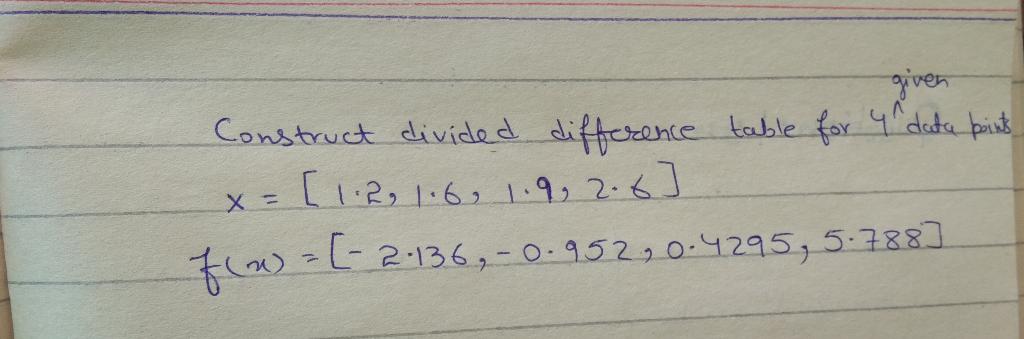 Construct divided difference table for 4 given data points
x = [1.2, 1.6, 1.9, 2.6]
f(x) = [-2.136, -0.952, 0.4295, 5.788]